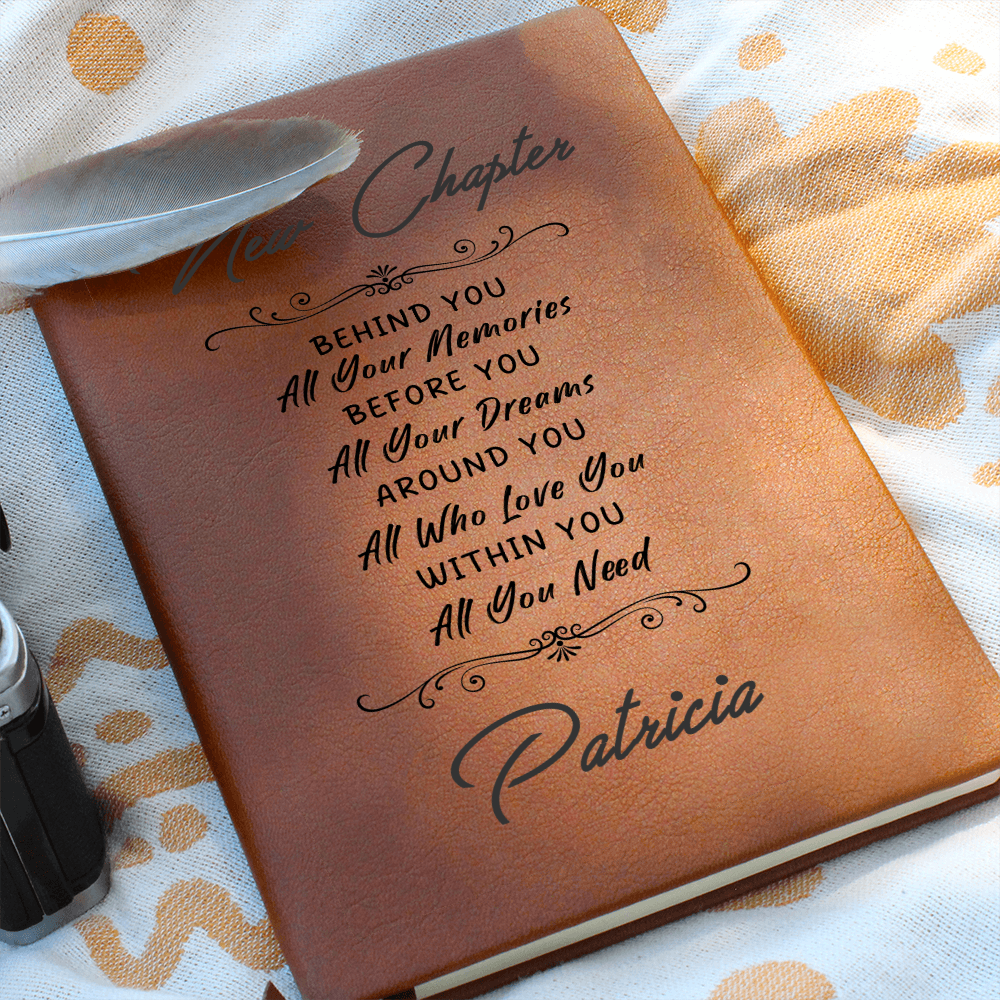 New Chapter
BEHIND YOU
All Your Memories
BEFORE YOU
All Your Dreams
AROUND YOU
All Who Love You
WITHIN YOU
All You Need
Patricia